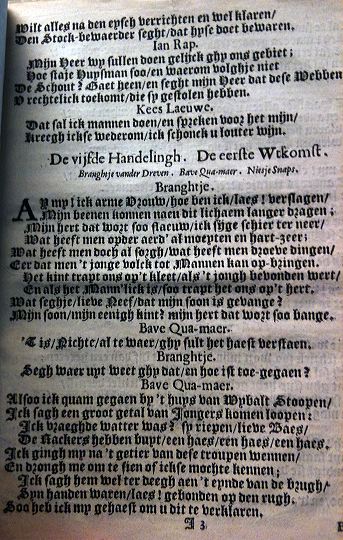 Wilt alles na den eysch verrichten en wel klaren/
Den Stock-bewaerder seght/dat hyse doet bewaren.
Ian Rap.
Mijn Heer wy sullen doen gelijck ghy ons gebiet;
Hoe staje Huysman soo/en waerom volghje niet
De Schout? Gaet heen/en seght mijn Heer dat dese Webben
V rechtelick toekomt/die sy gestolen hebben.
Kees Laeuwe.
Dat sal ick mannen doen/en spreken voor het mijn/
Kreegh ickse wederom/ick schonck u louter wijn.
De vijfde Handelingh. De eerste Wtkomst.
Branghtje vander Dreven. Bave Qua-maer. Niesje Snaps.
Branghtje.
AY my! ick arme Vrouw/hoe ben ick/laes! verslagen/
Mijn beenen konnen naeu dit lichaem langer dragen;
Mijn hert dat wort soo flaeuw/ick sijge schier ter neer/
Wat heeft men opder aerd' al moeyten en hart-zeer;
Wat heeft men doch al sorgh/wat heeft men droeve dingen/
Eer dat men 't jonge volck tot Mannen kan op-bringen.
Het kint trapt ons op't kleet/als 't jongh bevonden wert/
En als het Mann'lick is/soo trapt het ons op't hert.
Wat seghje/lieve Neef/dat mijn soon is gevange?
Mijn soon/mijn eenigh kint? mijn hert dat wort soo bange.
Bave Qua-maer.
'T is/Nichte/al te waer/ghy sult het haest verstaen.
Branghtje.
Segh waer uyt weet ghy dat/en hoe ist toe-gegaen?
Bave Qua-maer.
Alsoo ick quam gegaen by 't huys van Wybalt Stoopen/
Ick sagh een groot getal van Jongers komen loopen:
Ick vraeghde watter was? sy riepen/lieve Baes/
De Rackers hebben buyt/een haes/een haes/een haes.
Ick gingh my na 't getier van dese troupen wennen/
En drongh me om te sien of ickse mochte kennen;
Ick sagh hem wel ter deegh aen 't eynde van de brugh/
Syn handen waren/laes! gebonden op den rugh.
Soo heb ick my gehaest om u dit te verklaren.
I 3